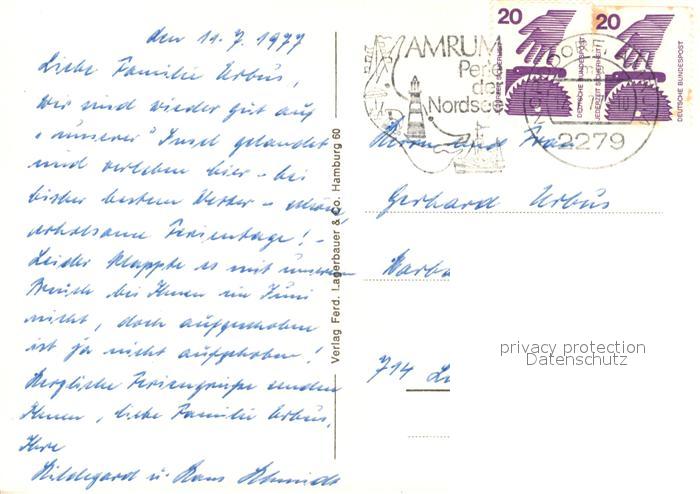 den 11.7.1977
Liebe Familie Urbus,
wir sind wieder gut auf
"unserer" Insel gelandet
und verleben hier - bei
bisher bestem Wetter - schöne
erholsame Ferientage! -
Leider klappte es mit unserem
Besuch bei Ihnen im Juni
nicht, doch aufgeschoben
ist ja nicht aufgehoben!
Herzliche Feriengrüße senden
Ihnen, liebe Familie Urbus,
Ihre
Hildegard u. Hans Schmidt
Verlag Ferd. Lagerbauer & Co. Hamburg 60
AMRUM
Perle
der
Nordsee
2279
20
DEUTSCHE BUNDESPOST
20
JEDERZEIT SICHERHEIT
DEUTSCHE BUNDESPOST
Herrn und Frau
Gerhard Urbus
714
privacy protection
Datenschutz